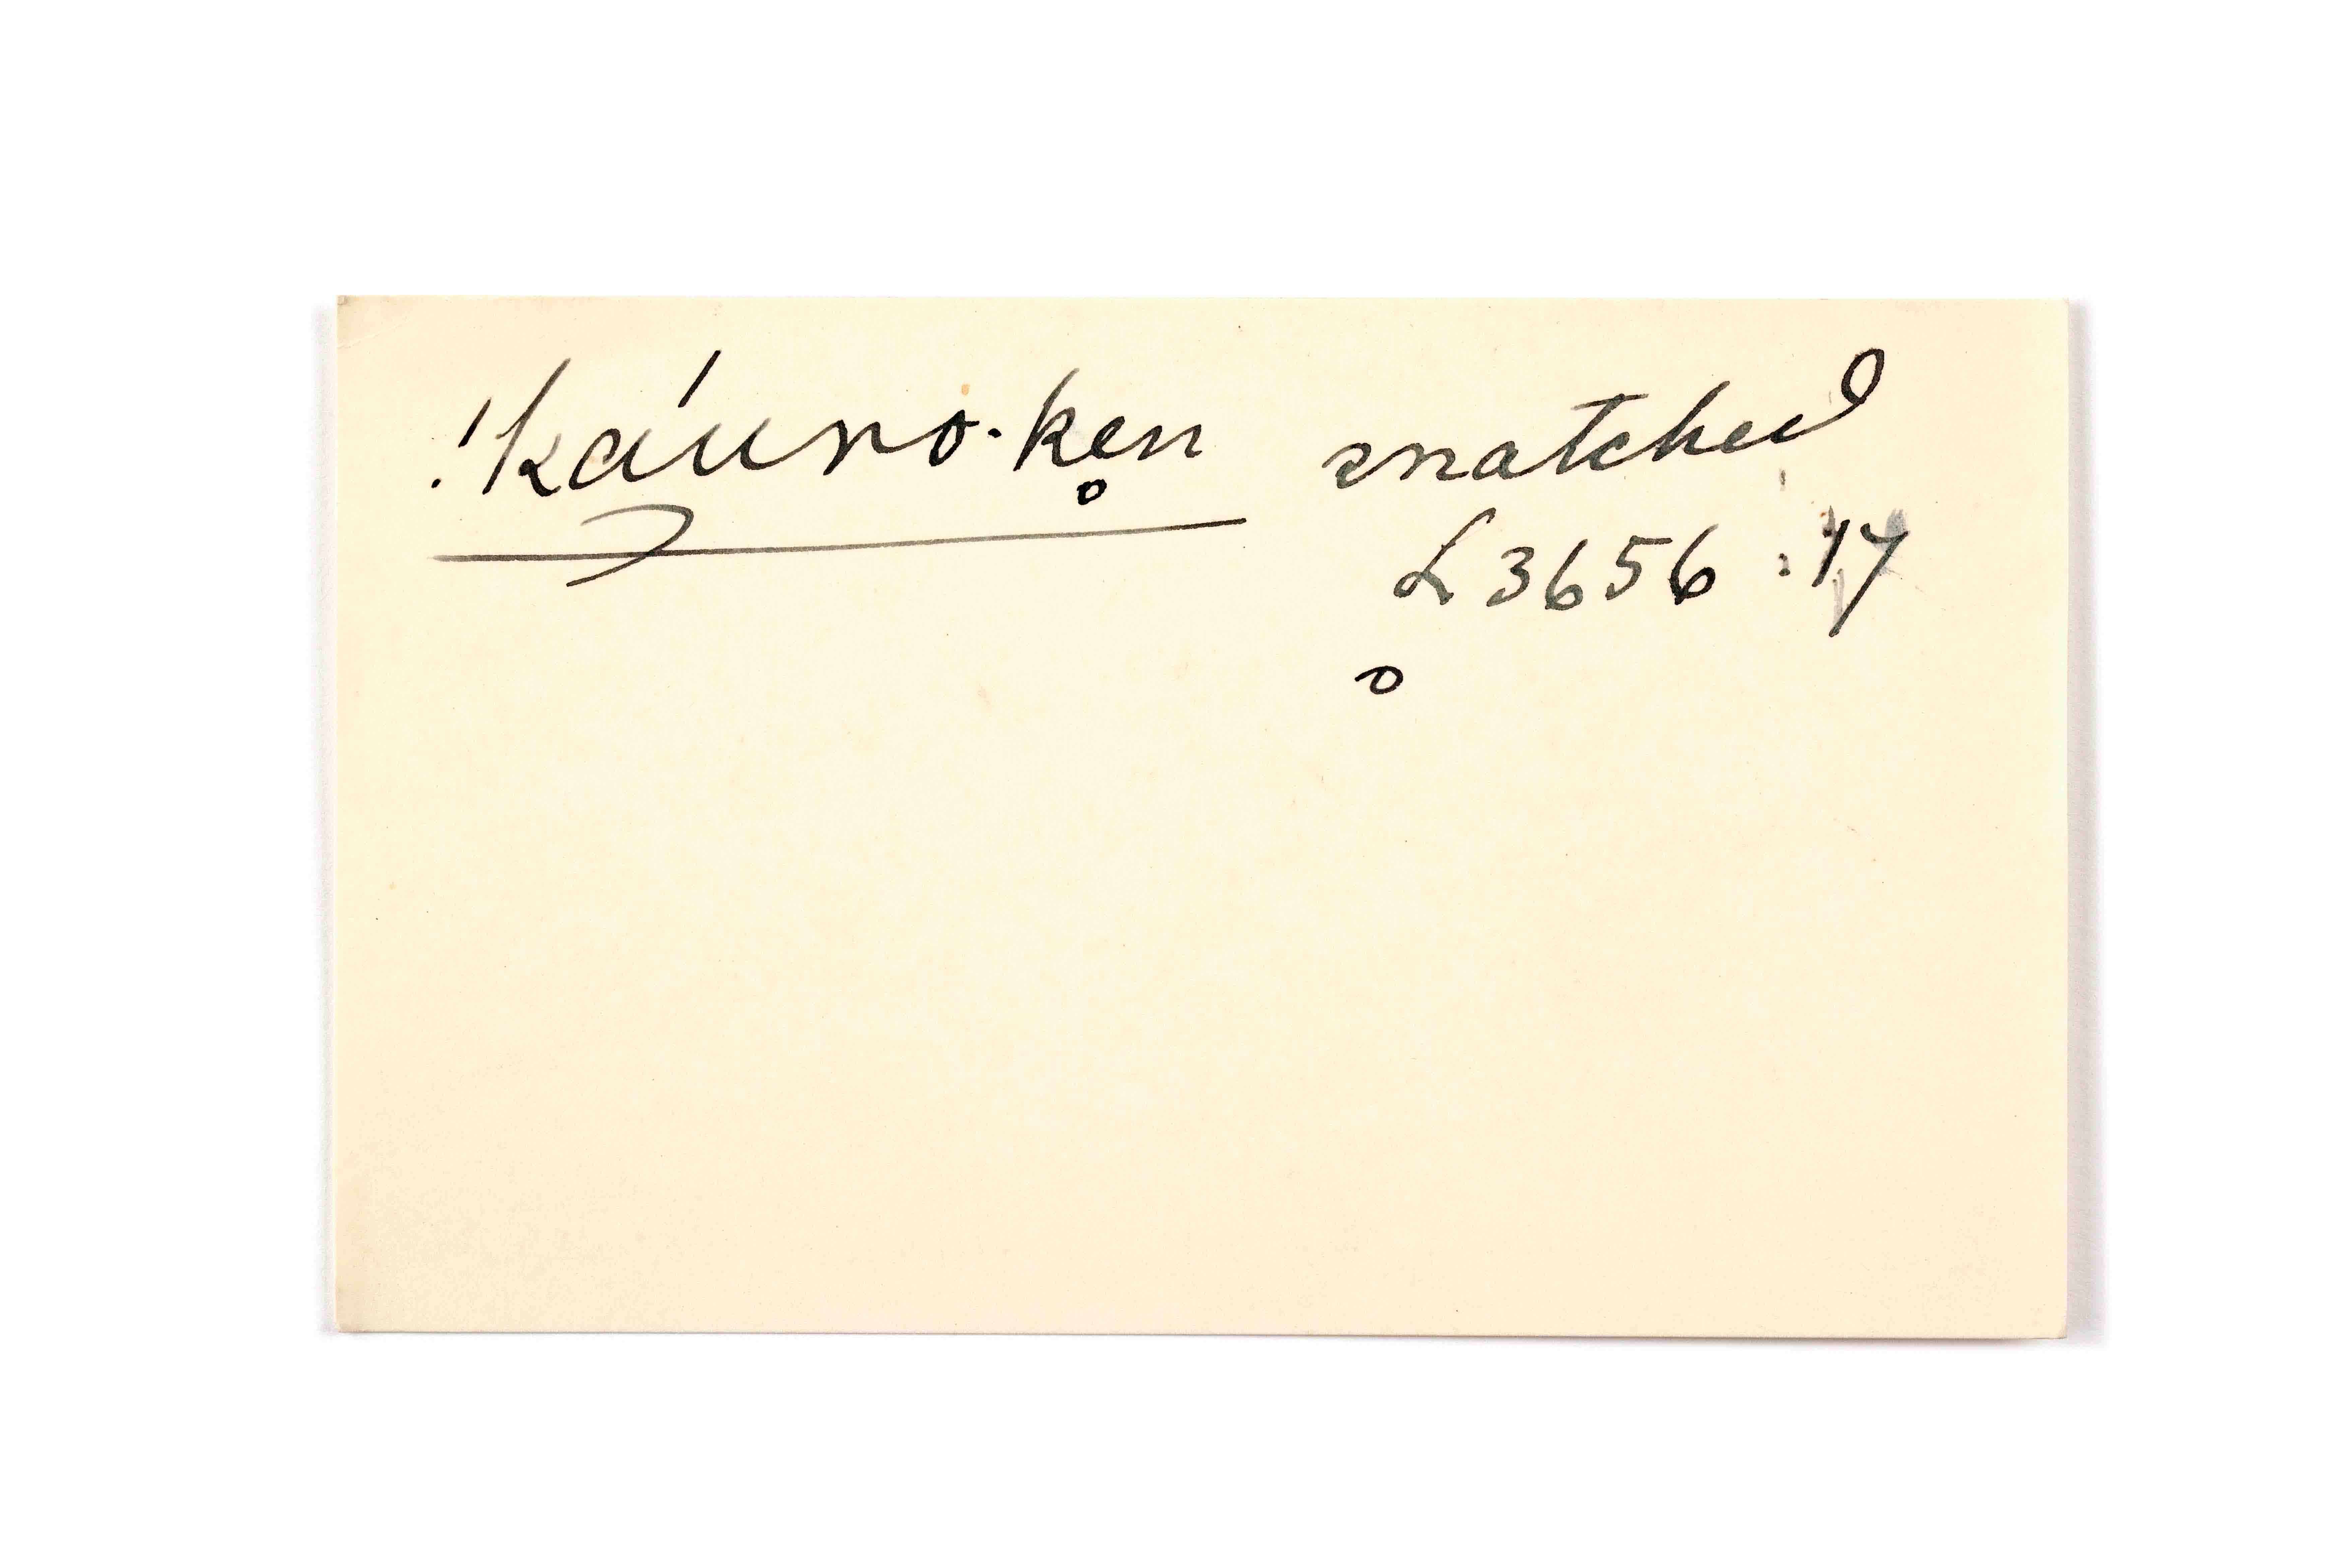 !káuro-ke̥n snatched
L 3656 : 17
o